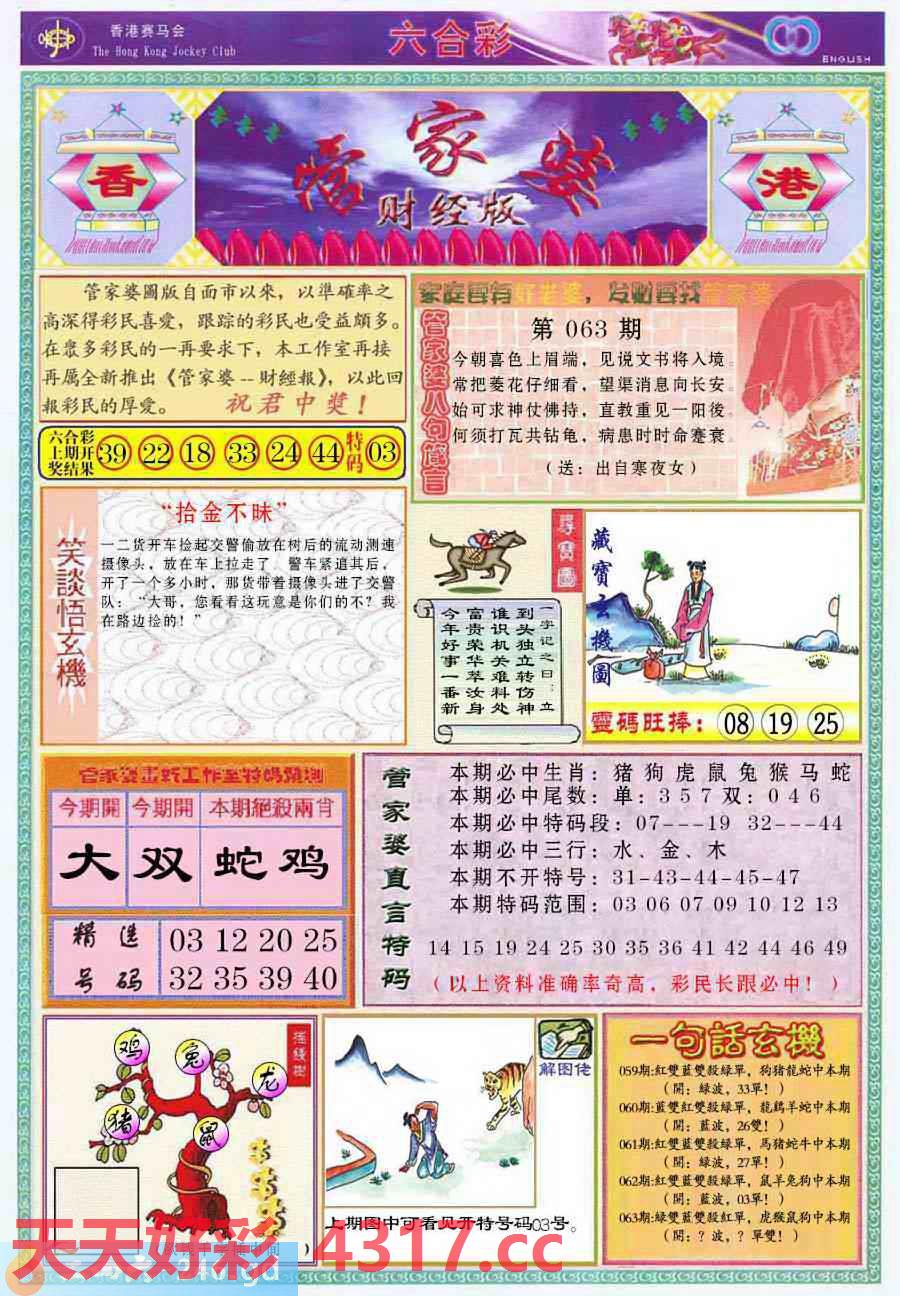 香港赛马会
The Hong Kong Jockey Club
六合彩
ENGLISH
香
管家婆
财经版
港
管家婆圖版自面市以來，以準確率之
高深得彩民喜愛，跟踪的彩民也受益頗多。
在眾多彩民的一再要求下，本工作室再接
再厲全新推出《管家婆--財經報》，以此回
報彩民的厚愛。 祝君中獎！
六合彩
上期开
奖结果
39 22 18 33 24 44 特码 03
家庭要有好老婆，发财要找管家婆
管家婆八句箴言
第 063 期
今朝喜色上眉端，见说文书将入境。
常把菱花仔细看，望渠消息向长安。
始可求神仗佛持，直教重见一阳後。
何须打瓦共钻龟，病患时时命蹇衰。
（送：出自寒夜女）
笑談悟玄機
“拾金不昧”
一二货开车捡起交警偷放在树后的流动测速
摄像头，放在车上拉走了，警车紧追其后，
开了一个多小时，那货带着摄像头进了交警
队：“大哥，您看看这玩意是你们的不？我
在路边捡的！”
尋寶圖
一字记之曰：立
到头独立转伤神
谁识机关难料处
富贵荣华萃汝身
今年好事一番新
藏寶玄機圖
靈碼旺捧： 08 19 25
管家婆畫新工作室特碼預測
今期開 今期開 本期絕殺兩肖
大 双 蛇鸡
精选
号码
03 12 20 25
32 35 39 40
管家婆直言特码
本期必中生肖：猪狗虎鼠兔猴马蛇
本期必中尾数：单：3 5 7 双：0 4 6
本期必中特码段：07---19 32---44
本期必中三行：水、金、木
本期不开特号：31-43-44-45-47
本期特码范围：03 06 07 09 10 12 13
14 15 19 24 25 30 35 36 41 42 44 46 49
（以上资料准确率奇高，彩民长跟必中！）
摇錢樹
鸡
兔
龙
猪
鼠
解图佬
上期图中可看见开特号码03号。
一句話玄機
059期:紅雙藍雙殺綠單，狗猪龍蛇中本期
（開：綠波，33單！）
060期:藍雙紅雙殺綠單，龍鷄羊蛇中本期
（開：藍波，26雙！）
061期:紅雙藍雙殺綠單，馬猪蛇牛中本期
（開：綠波，27單！）
062期:紅雙藍雙殺綠單，鼠羊兔狗中本期
（開：藍波，03單！）
063期:綠雙藍雙殺紅單，虎猴鼠狗中本期
（開：？波，？單雙！）
天天好彩 4317.cc